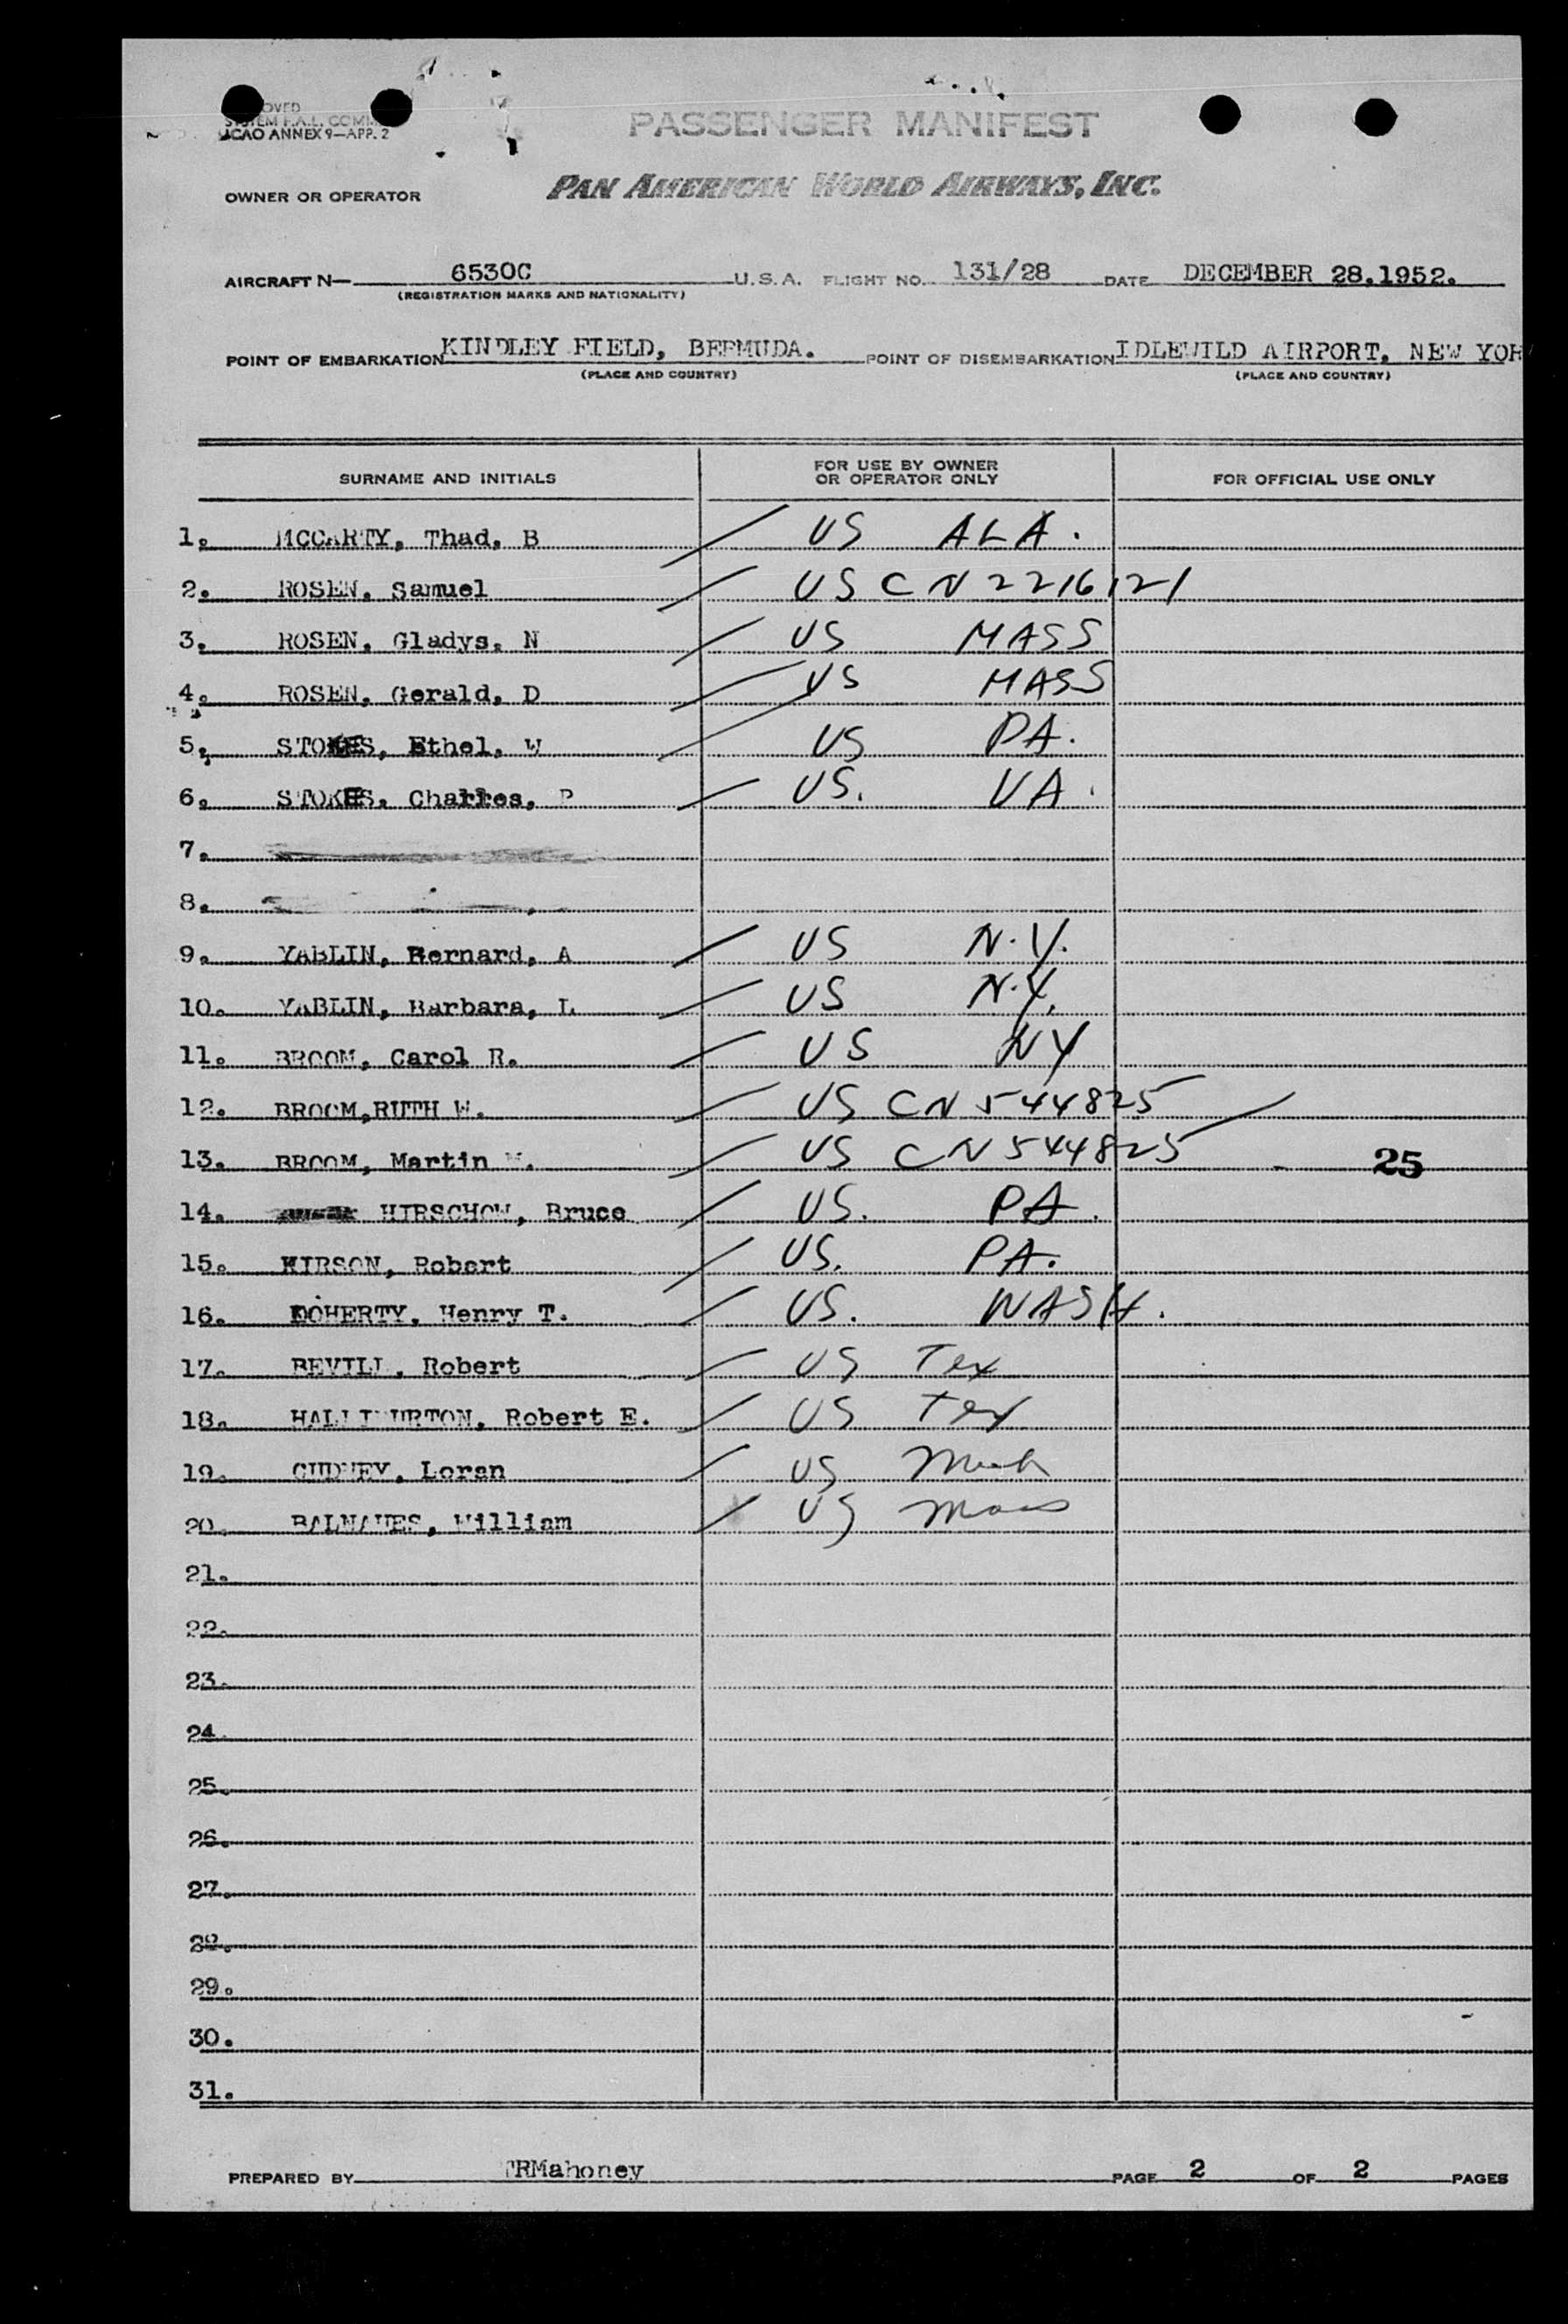 OVED
SYSTEM F.A.L. COMM
ICAO ANNEX 9—APP. 2
PASSENGER MANIFEST
OWNER OR OPERATOR PAN AMERICAN WORLD AIRWAYS, INC.
AIRCRAFT N— 6530C U.S.A. FLIGHT NO. 131/28 DATE DECEMBER 28.1952.
(REGISTRATION MARKS AND NATIONALITY)
POINT OF EMBARKATION KINDLEY FIELD, BERMUDA. POINT OF DISEMBARKATION IDLEWILD AIRPORT, NEW YOR
(PLACE AND COUNTRY) (PLACE AND COUNTRY)
SURNAME AND INITIALS FOR USE BY OWNER OR OPERATOR ONLY FOR OFFICIAL USE ONLY
1. MCCARTY, Thad, B US ALA.
2. ROSEN, Samuel US CN 2216121
3. ROSEN, Gladys, N US MASS
4. ROSEN, Gerald, D US MASS
5. STOKES, Ethel, W US PA.
6. STOKES, Charles, P US. VA.
7.
8.
9. YABLIN, Bernard, A US N.Y.
10. YABLIN, Barbara, L US N.Y.
11. BROOM, Carol R. US NY
12. BROOM, RUTH W. US CN 544825
13. BROOM, Martin US CN 544825 25
14. HIRSCHOW, Bruce US. PA.
15. KIRSON, Robert US. PA.
16. DOHERTY, Henry T. US. WASH.
17. BEVILL, Robert US Tex
18. HALLIBURTON, Robert E. US Tex
19. CUDNEY, Loren US Mich
20. BALMAVES, William US Mass
21.
22.
23.
24.
25.
26.
27.
28.
29.
30.
31.
PREPARED BY TRMahoney PAGE 2 OF 2 PAGES